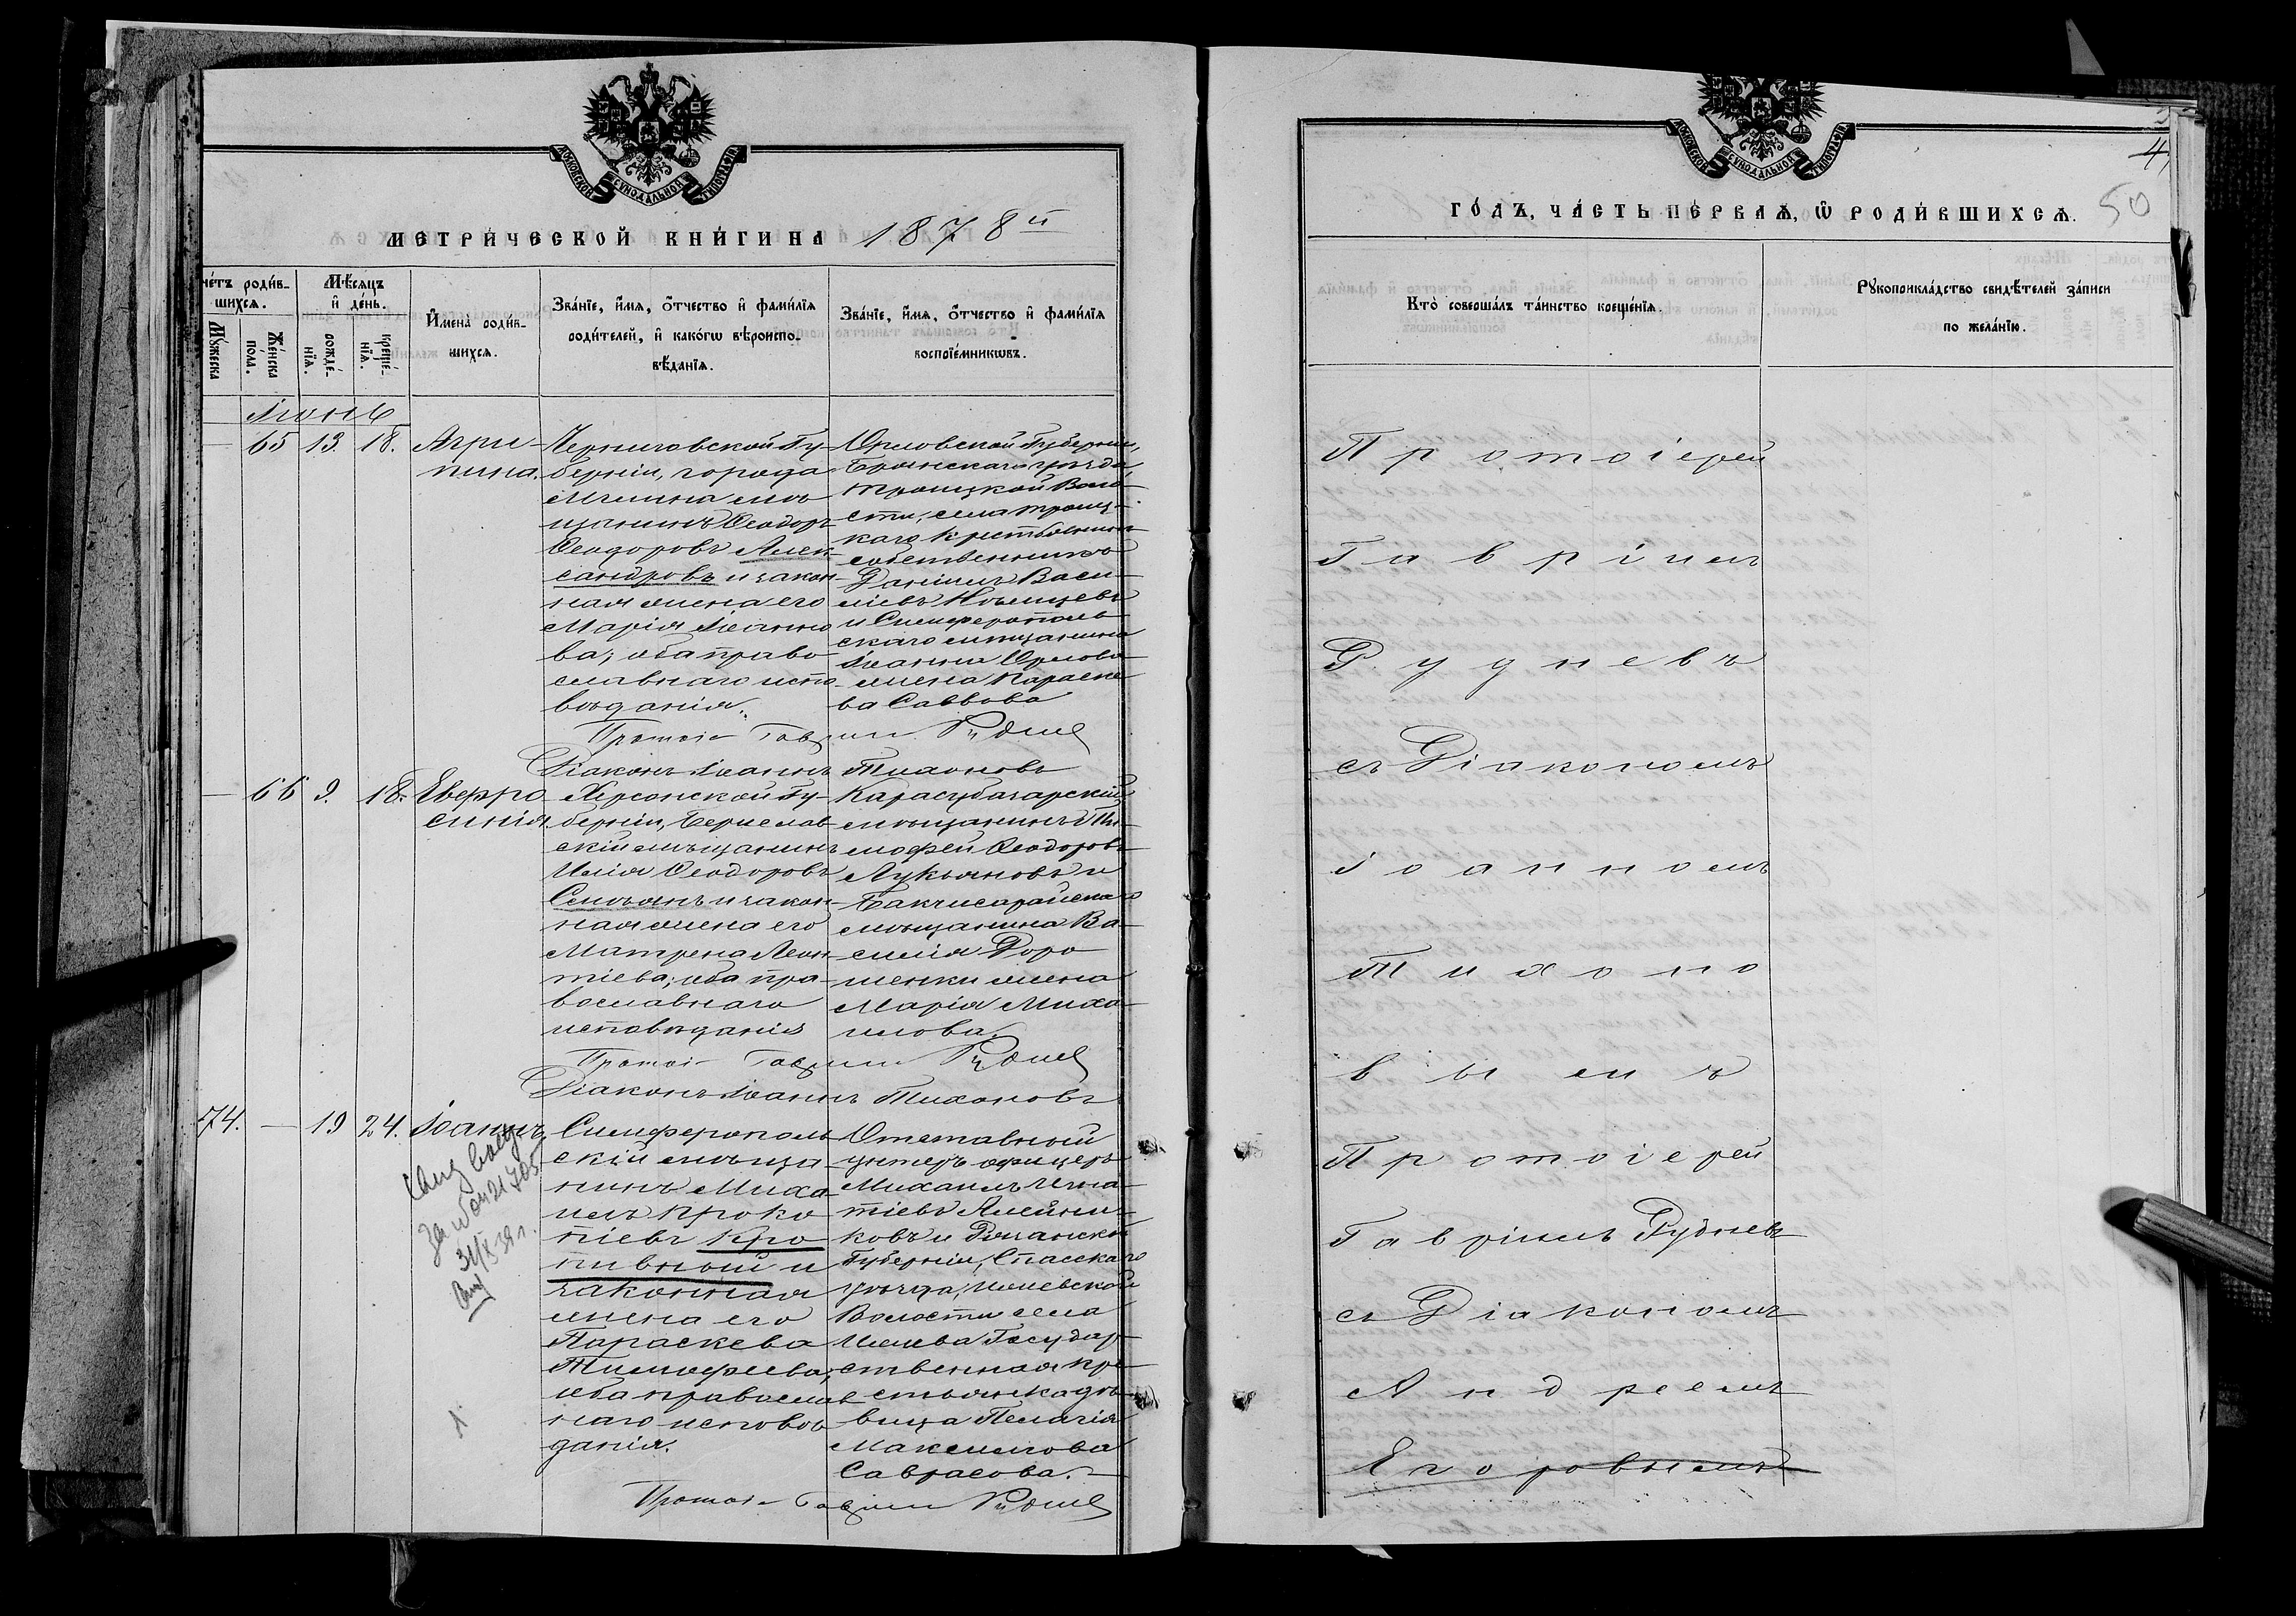 МОСКОВСКОЙ СѴНОДАЛЬНОЙ ТИПОГРАФІИ
МЕТРИ́ЧЕСКОЙ КНИ́ГИ НА 1878й
счéтъ роди́в-
шихсѧ.
Мѣ́сяцъ
и҆ дéнь.
И҆менà роди́в-
шихсѧ.
Звáнїе, и҆́мѧ, ѻ҆́тчество и҆ фами́лїѧ
роди́телей, и҆ какóгѡ вѣроиспо-
вѣ́данїѧ.
Звáнїе, и҆́мѧ, ѻ҆́тчество и҆ фами́лїѧ
воспрїéмникѡвъ.
Мꙋ́жеска
Жéнска
пóла.
рождé-
нїѧ.
крещé-
нїѧ.
Іюнь
— 65 13. 18. Агри-
пина.
Черниговской Гу-
берніи, города
Мглина мѣ-
щанинъ Ѳеодоръ
Ѳеодоровъ Алек-
сандровъ и закон-
ная жена его
Марія Іоанно-
ва; оба право-
славнаго испо-
вѣданія.
Орловской Губерніи,
Брянскаго уѣзда,
Троицкой Воло-
сти, села Троиц-
каго крестьянинъ
собственникъ
Даніилъ Васи-
ліевъ Нѣмцевъ
и Симферополь-
скаго мѣщанина
Іоанна Орлова
жена Параске-
ва Саввова
Протоі Гавріил Рудне
Діаконъ Іоаннъ Тихоновъ
— 66 9. 18. Евфро-
синія.
Херсонской Гу-
берніи, Берислав-
скій мѣщанинъ
Илія Ѳеодоровъ
Семьянъ и закон-
ная жена его
Матрена Леон-
тіева; оба пра-
вославнаго
исповѣданія
Карасубазарскій
мѣщанинъ Ти-
моѳей Ѳеодоровъ
Лукьяновъ и
Бакчисарайскаго
мѣщанина Ва-
силія Доро-
шенки жена
Марія Миха-
илова
Протоі Гавріил Рудне
Діаконъ Іоаннъ Тихоновъ
74. — 19 24. Іоаннъ
Симферополь-
скій мѣща-
нинъ Миха-
илъ Проко-
піевъ Кро-
пивный и
законная
жена его
Параскева
Тимоѳеева;
оба православ-
наго исповѣ-
данія.
Отставный
унтеръ офицеръ
Михаилъ Игна-
тіевъ Алейни-
ковъ и Рязанской
Губерніи, Спасскаго
уѣзда, Ижевской
Волости села
Ижева Государ-
ственная кре-
стьянка дѣ-
вица Пелагія
Максимова
Саврасова.
Протоі Гавріил Рудне
МОСКОВСКОЙ СѴНОДАЛЬНОЙ ТИПОГРАФІИ
4
50
ГÓДЪ, ЧÁСТЬ ПÉРВАѦ, Ѡ҆ РОДИ́ВШИХСѦ.
Кто̀ совершáлъ тáинство крещéнїѧ.
Рꙋкоприклáдство свидѣ́телей зáписи
по желáнїю.
Протоіерей
Гавріилъ
Рудневъ
съ Діакономъ
Іоанномъ
Тихоно
вымъ
Протоіерей
Гавріилъ Рудневъ
съ Діакономъ
Андреемъ
Егоровымъ